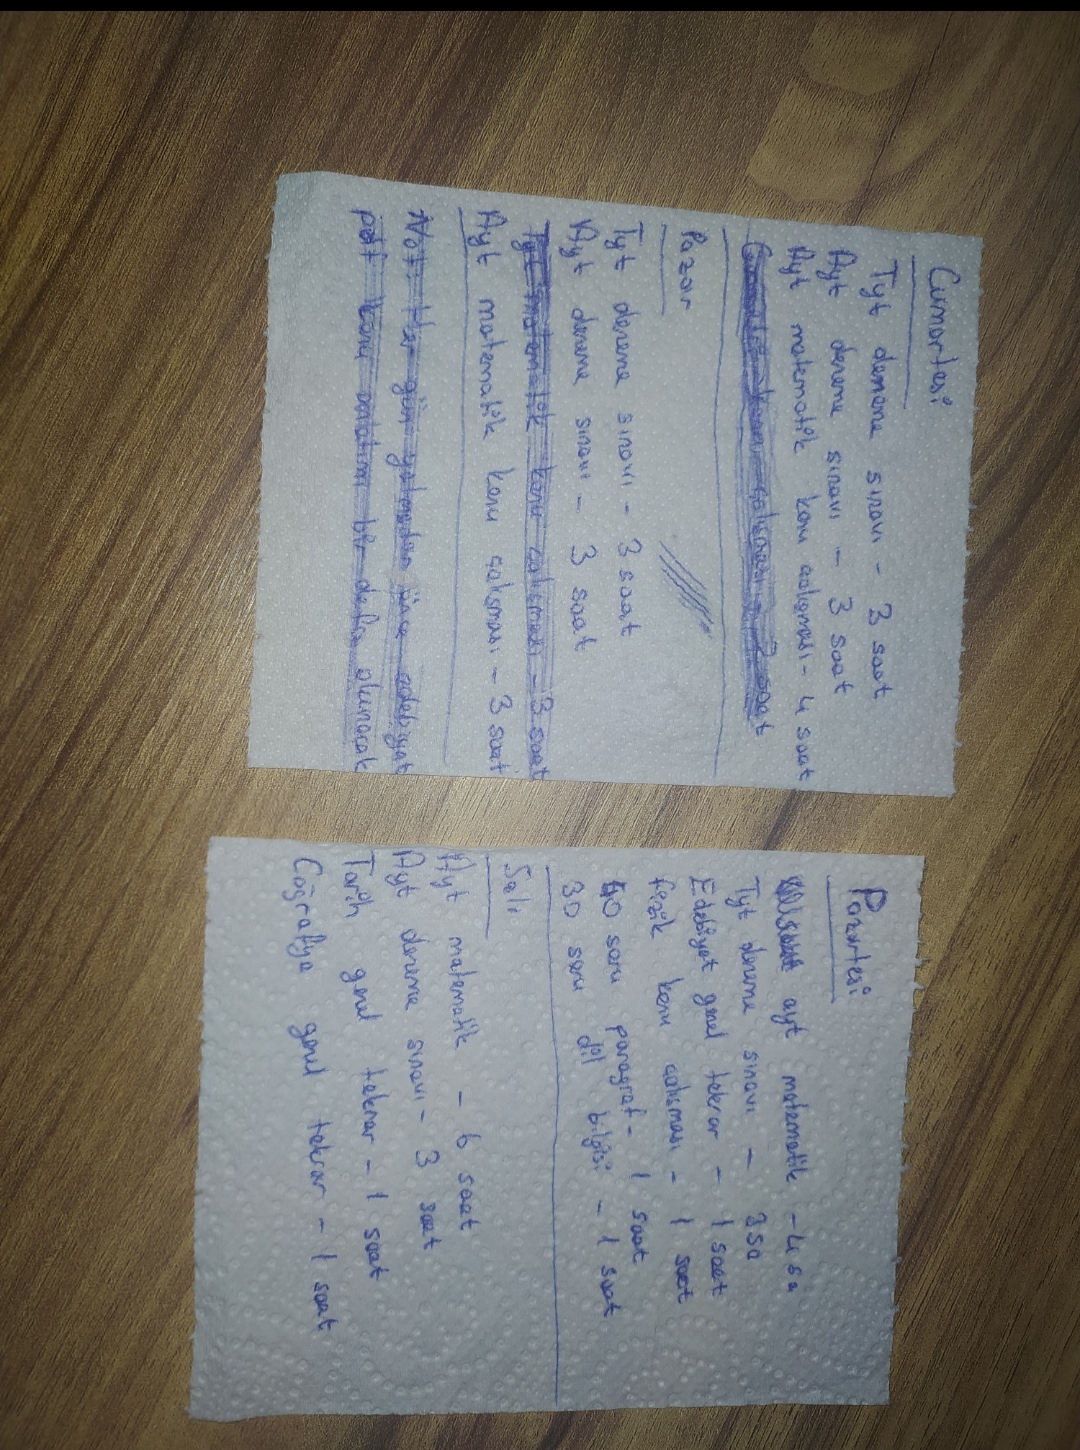 Cumartesi
Tyt deneme sınavı - 3 saat
Ayt deneme sınavı - 3 saat
Ayt matematik konu çalışması - 4 saat
konu çalışması - saat
Pazar
Tyt deneme sınavı - 3 saat
Ayt deneme sınavı - 3 saat
Tyt matematik konu çalışması - 3 saat
Ayt matematik konu çalışması - 3 saat
Not: Her gün yatmadan önce edebiyat
pdf konu anlatım bir defa okunacak
Pazartesi
ayt matematik - 4 sa
Tyt deneme sınavı - 3 sa
Edebiyat genel tekrar - 1 saat
fizik konu çalışması - 1 saat
40 soru paragraf - 1 saat
30 soru dil bilgisi - 1 saat
Salı
Ayt matematik - 6 saat
Ayt deneme sınavı - 3 saat
Tarih genel tekrar - 1 saat
Coğrafya genel tekrar - 1 saat